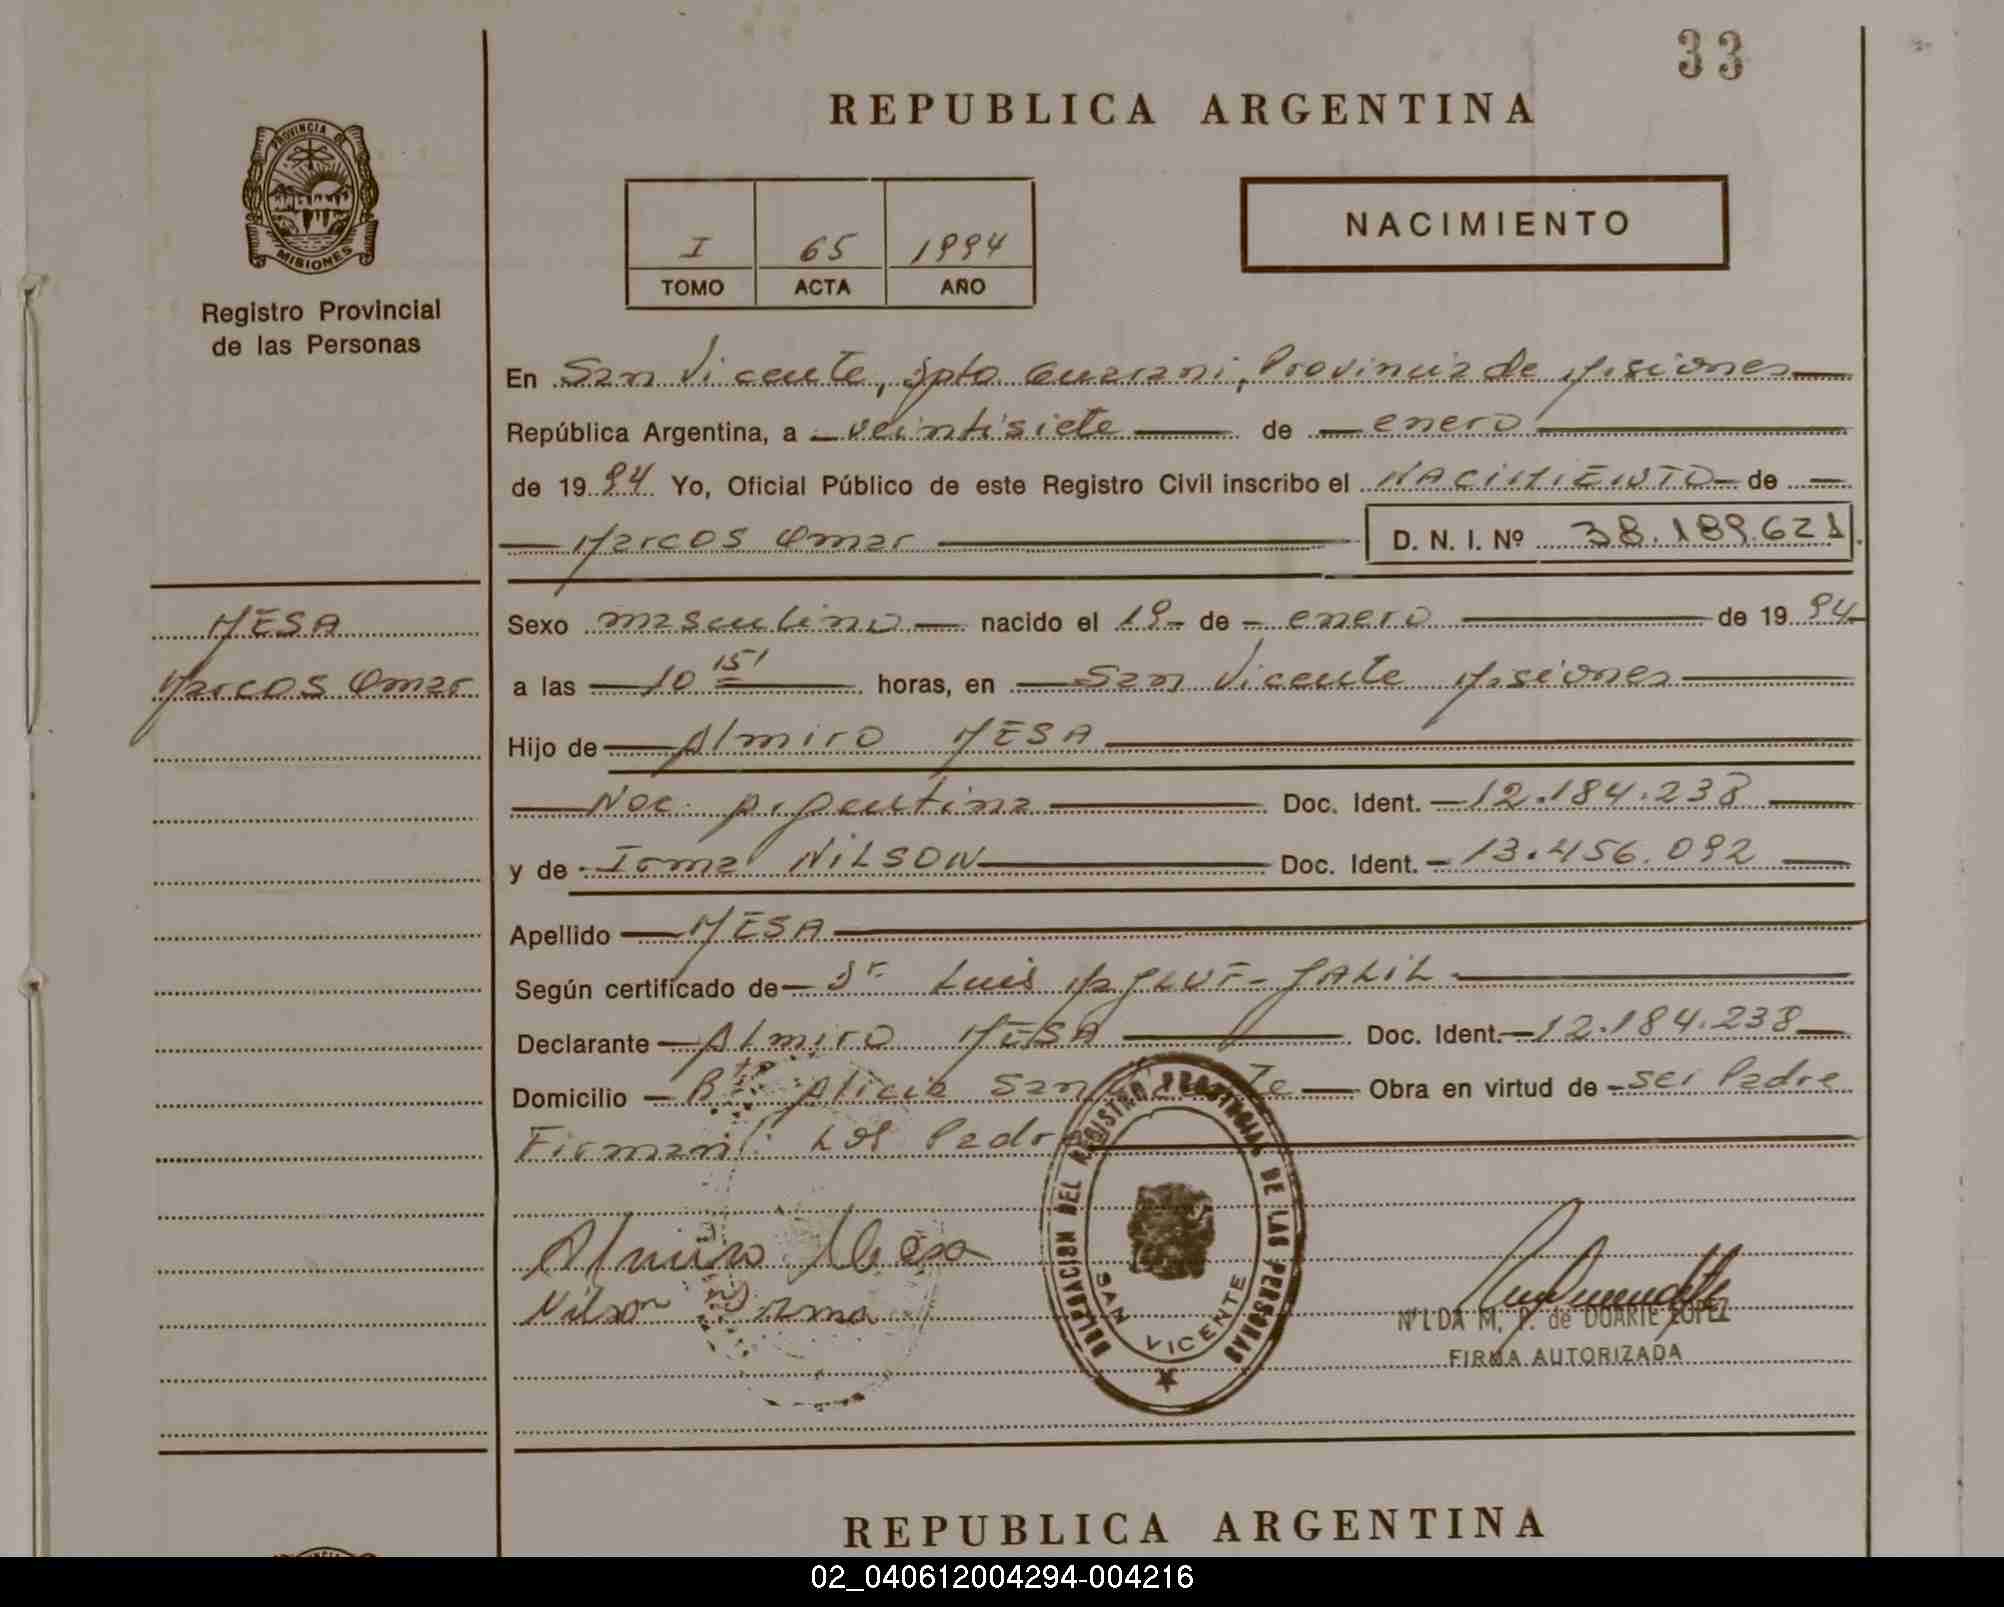 33
REPUBLICA ARGENTINA
PROVINCIA
MISIONES
Registro Provincial
de las Personas
I 65 1994
TOMO ACTA AÑO
NACIMIENTO
En San Vicente, Dpto Guarani, Provincia de Misiones
República Argentina, a veintisiete de enero
de 1994 Yo, Oficial Público de este Registro Civil inscribo el NACIMIENTO de
Marcos Omar D. N. I. Nº 38.189.621
MESA
Marcos Omar
Sexo masculino nacido el 19 de enero de 1994
a las 10 15' horas, en San Vicente Misiones
Hijo de Almiro MESA
Nac. Argentina Doc. Ident. 12.184.238
y de Irma NILSON Doc. Ident. 13.456.092
Apellido MESA
Según certificado de Dr Luis JALIL
Declarante Almiro MESA Doc. Ident. 12.184.238
Domicilio Bº Alicia San Vicente Obra en virtud de ser Padre
Firman: Los Padres
Almiro Mesa
Nilson Irma
DELEGACION DEL REGISTRO PROVINCIAL DE LAS PERSONAS
SAN VICENTE
NILDA M. P. de DUARTE LOPEZ
FIRMA AUTORIZADA
REPUBLICA ARGENTINA
02_040612004294-004216